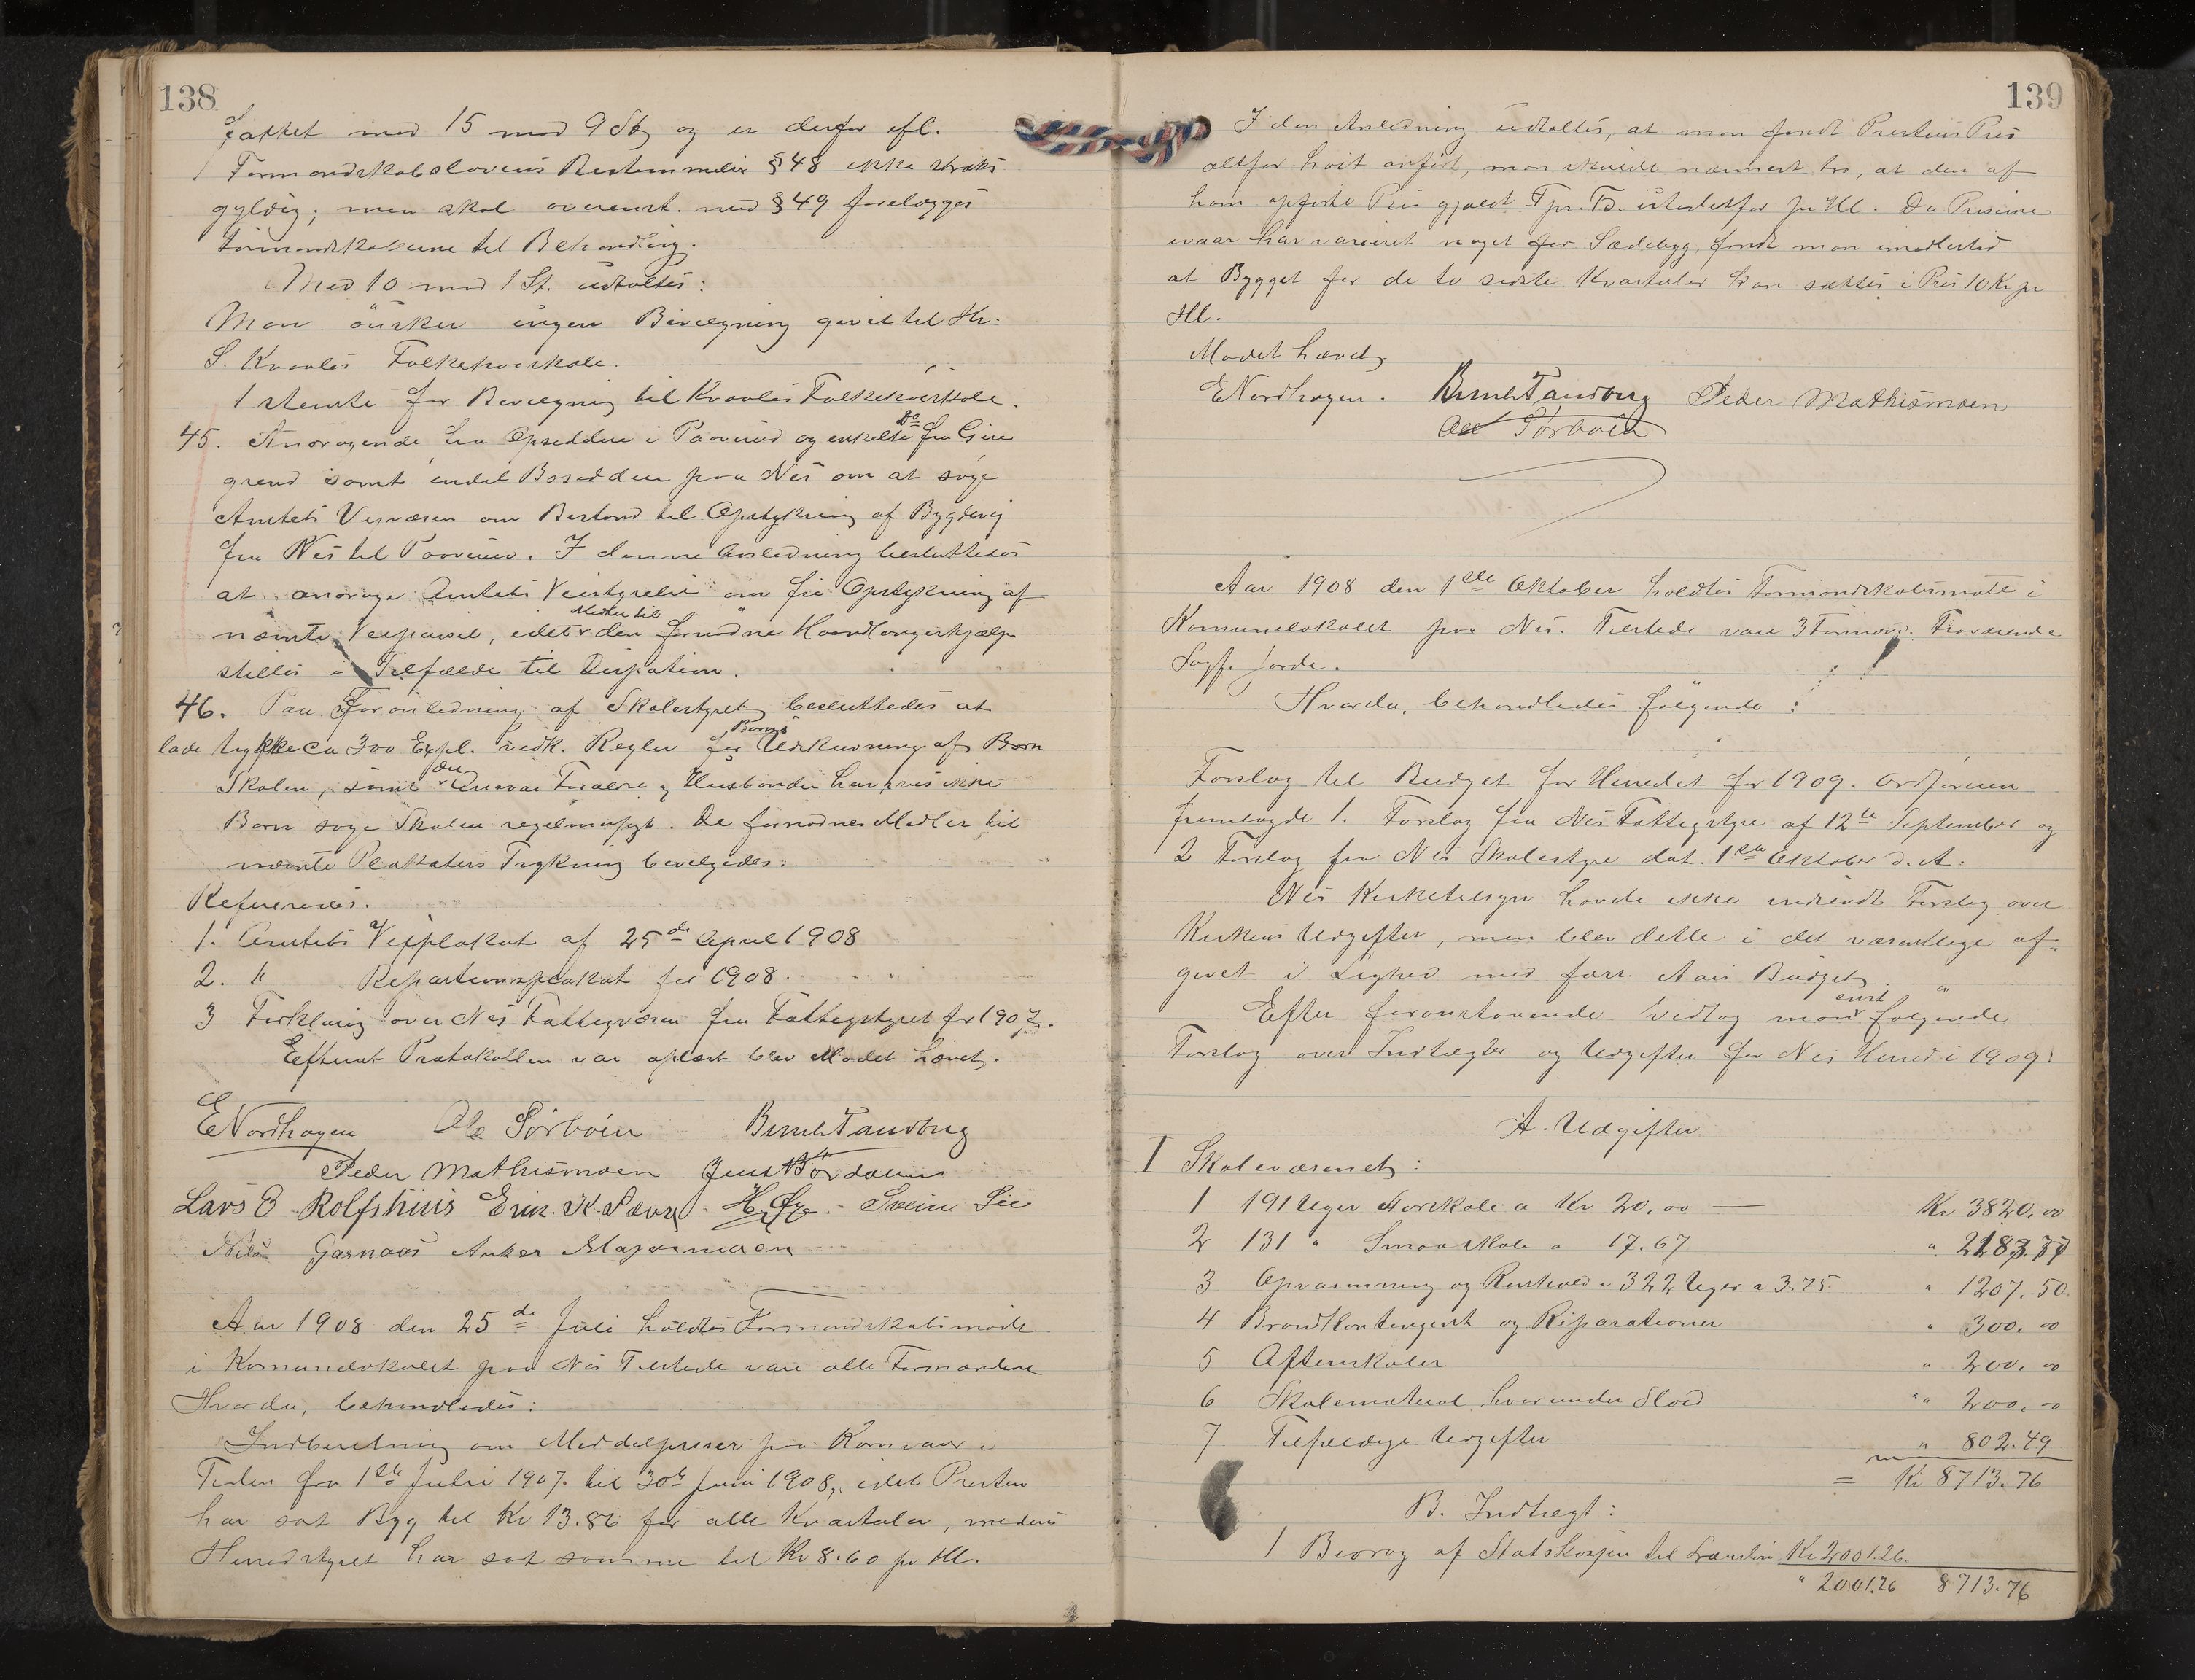 138
fattet med 15 mod 9 St og er derfor efl.
Formandskabslovens Bestemmelse § 48 ikke straks
gyldig; men skal overenst. med § 49 forelægges
Formandskaberne til Behandling.
Med 10 mod 1 St. udtaltes:
Man önsker ingen Bevilgning givet til Hr.
S. Kvaales Folkehøiskole.
1 stemte for Bevilgning til Kvaales Folkehøiskole.
45. Andragende fra Opsiddere i og enkelte do fra
grend samt endel Opsiddere paa Nes om at søge
Amtets Veivæsen om Bistand til Opstykning af Bygdevej
fra Nes til . I denne Anledning besluttedes
at andrage Amtets Veistyrelse om fri Opstykning af
nævnte Veiparsel, idet Midler til den fornødne Haandlangerhjælp
stilles i Tilfælde til Disposition.
46. Paa Foranledning af Skolestyret besluttedes at
lade trykke ca 300 Expl. vedk. Regler for Børns Udskrivning af Børn
Skolen, samt det Ansvar Forældre og Husbonder har, hvis ikke
Børn søge Skolen regelmæssigt. De fornødne Midler til
nævnte Plakaters Trykning bevilgedes.
Refereredes.
1. Amtets Veiplakat af 25de April 1908
2. " Repartionsplakat for 1908.
3 Forklaring over Nes Fattigvæsen fra Fattigstyret for 1907.
Efterat Protokollen var oplæst blev Mødet hævet.
E Nordhagen Ole Sörböen Bernt Tandberg
Peder Mathismoen Jens
Lars B Rolfshuus Erik K. Sævre H. Svein Lie
Nils Garnaas Anker
Aar 1908 den 25de Juli holdtes Formandskabsmøde
i Komunelokalet paa Nes Tilstede vare alle Formændene
Hvorda, behandledes:
Indberetning om Middelpriser paa Kornvarer i
Tiden fra 1ste Juli 1907 til 30te Juni 1908, idet Presten
har sat Byg til Kr 13.86 for alle Kvartaler, medens
Herredstyret har sat samme til Kr 8.60 pr Hl.
139
I den Anledning udtaltes, at man fandt Prestens Pris
altfor høit anført, man skulde nærmest tro, at den af
ham opførte Pris gjaldt pr. Td. istedetfor pr Hl. Da Priserne
ivaar har varieret noget for Sædebyg, fandt man imidlertid
at Bygget for de to sidste Kvartaler kan sættes i Pris 10 Kr pr
Hl.
Mødet hævet.
E Nordhagen. Bernt Tandberg Peder Mathismoen
Ole Sörböen
Aar 1908 den 1ste Oktober holdtes Formandskabsmøte i
Komunelokalet paa Nes. Tilstede vare 3 Formænd. Fraværende
Sagf. Jorde.
Hvorda, behandledes følgende:
Forslag til Budget for Herredet for 1909. Ordføreren
fremlagde 1. Forslag fra Nes Fattigstyre af 12te September og
2 Forslag fra Nes Skolestyre dat. 1ste Oktober d. A.
Nes Kirketilsyn havde ikke indsendt Forslag over
Kirkens Udgifter, men blev dette i det væsentlige af-
givet i Lighed med forr. Aars Budget.
Efter foranstaaende vedtog man enst følgende
Forslag over Indtægter og Udgifter for Nes Herred i 1909:
A. Udgifter
I Skolevæsenet:
1 191 Uger Storskole a Kr 20.00 — Kr 3820.00
2 131 " Smaaskole a 17.67 " 2183.77
3 Opvarmning og Renhold i 322 Uger a 3.75. " 1207.50.
4 Brandkontingent og Reparationer " 300.00
5 Aftenskoler " 200.00
6 Skolemateriel herunder Sløid " 200.00
7 Tilfældige Udgifter " 802.49
= Kr 8713.76
B. Indtægt:
1 Bidrag af Statskassen til Lærerløn Kr 2001.26.
" 2001.26 8713.76